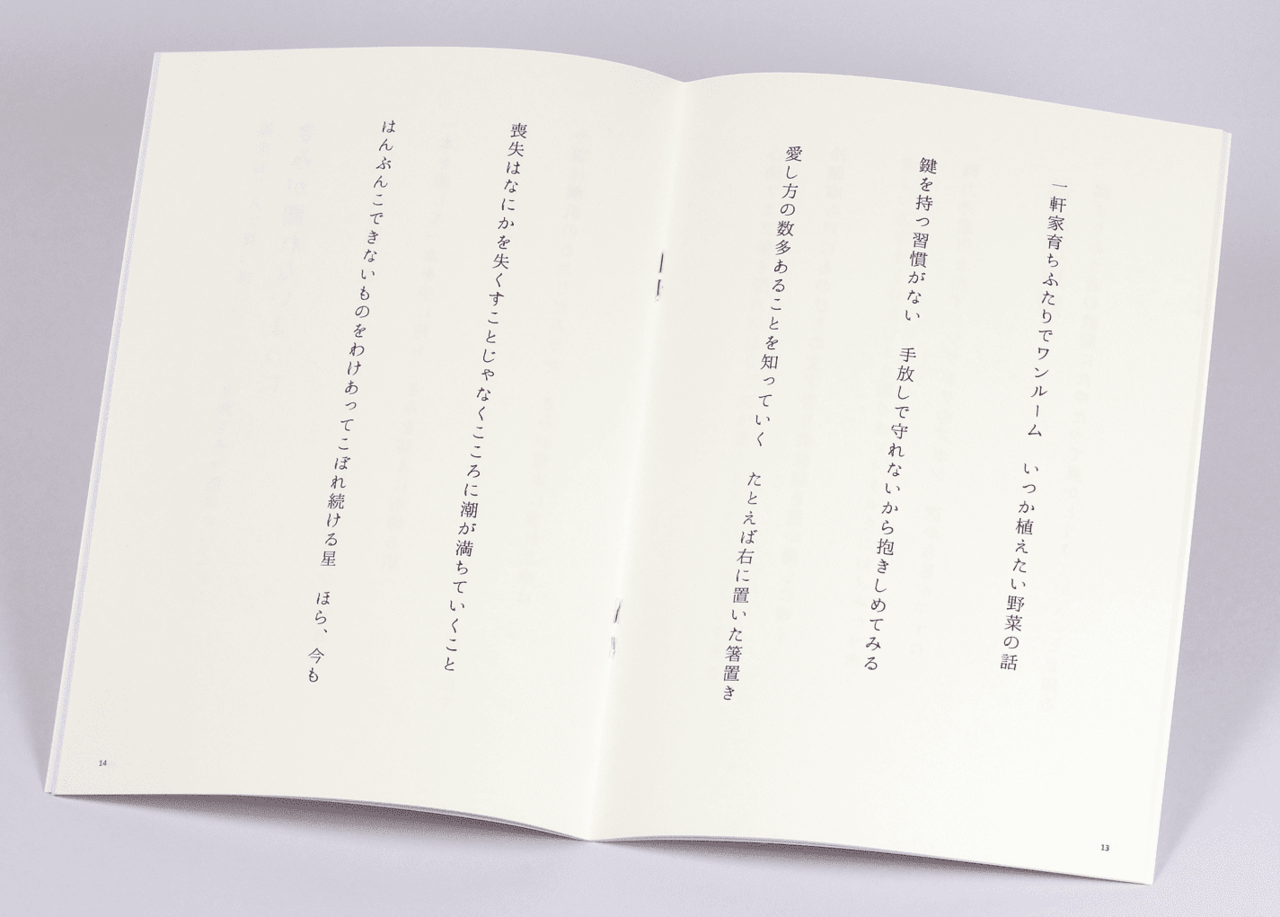 一軒家育ちふたりでワンルーム　いつか植えたい野菜の話
鍵を持つ習慣がない　手放しで守れないから抱きしめてみる
愛し方の数多あることを知っていく　たとえば右に置いた箸置き
13
喪失はなにかを失くすことじゃなくこころに潮が満ちていくこと
はんぶんこできないものをわけあってこぼれ続ける星　ほら、今も
14